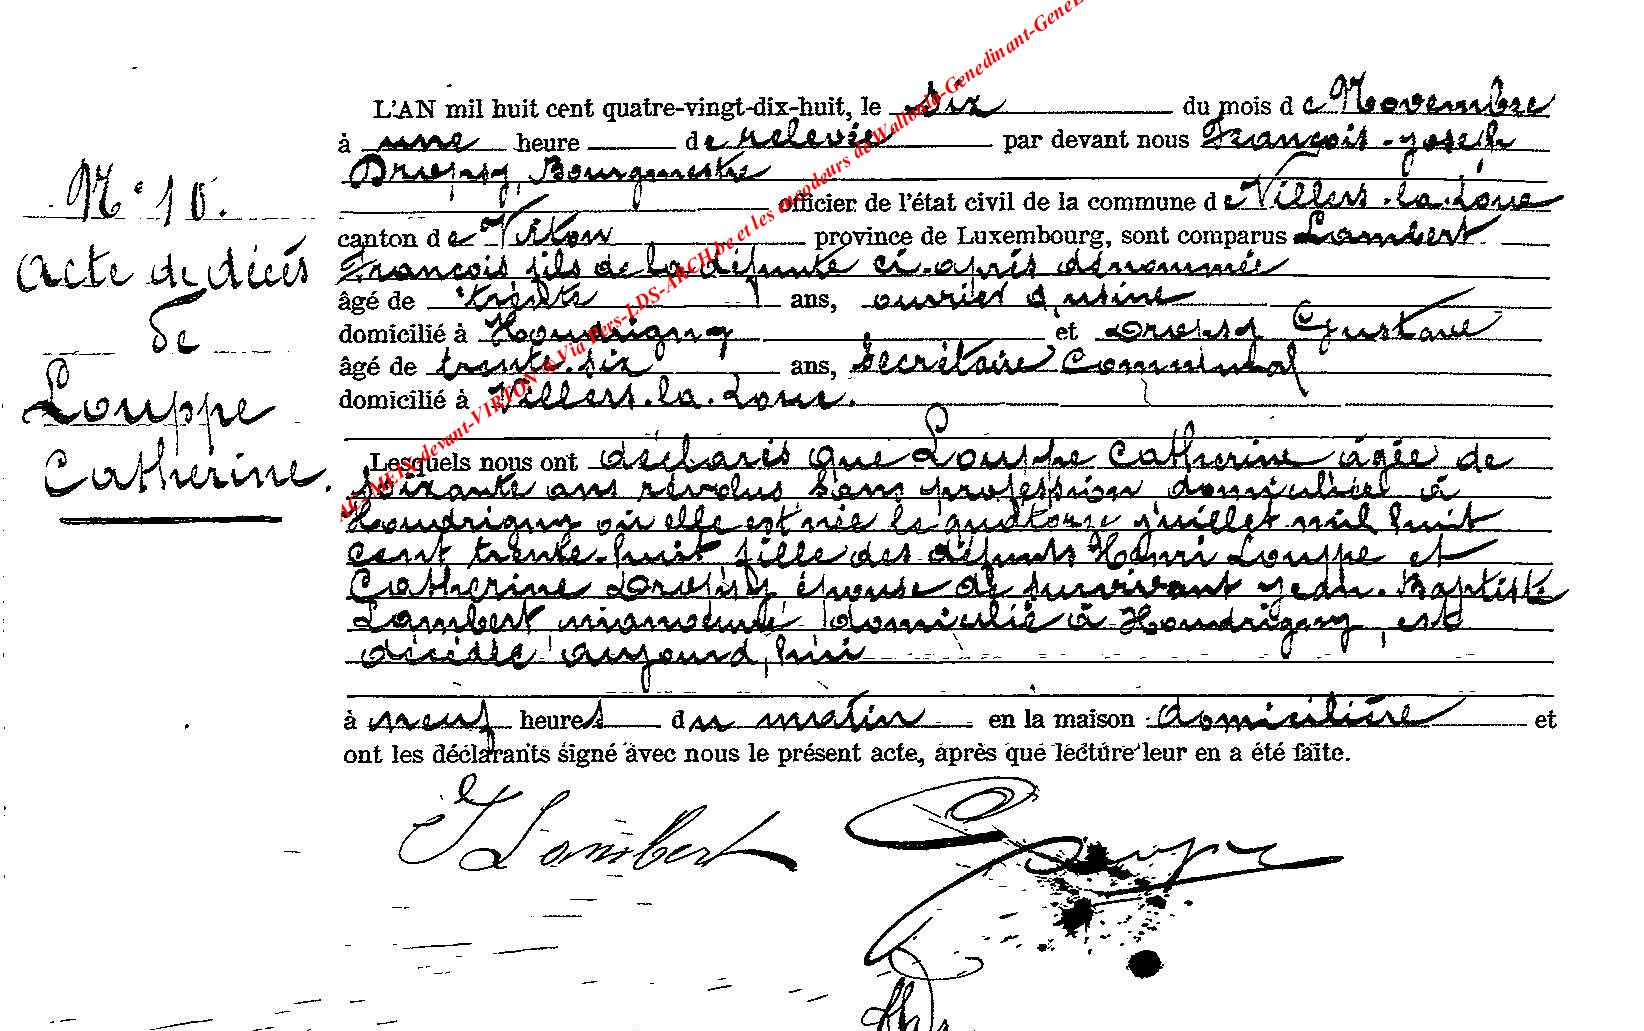 L'AN mil huit cent quatre-vingt-dix-huit, le six du mois de Novembre
à une heure de relevée par devant nous François-Joseph
Dropsy, Bourgmestre
officier de l'état civil de la commune de Villers-la-Loue
canton de Virton province de Luxembourg, sont comparus Lambert
François fils de la défunte ci-après dénommée
âgé de trente ans, ouvrier d'usine
domicilié à Houdrigny et Dropsy Gustave
âgé de trente-six ans, Secrétaire Communal
domicilié à Villers-la-Loue.
N° 10.
Acte de décès
de
Louppe
Catherine.
Lesquels nous ont déclarés que Louppe Catherine âgée de
soixante ans révolus sans profession domiciliée à
Houdrigny où elle est née le quatorze juillet mil huit
cent trente-huit, fille des défunts Henri Louppe et
Catherine Dropsy, épouse de survivant Jean-Baptiste
Lambert, manoeuvre, domicilié à Houdrigny, est
décédée aujourd'hui
à neuf heures du matin en la maison domicilière et
ont les déclarants signé avec nous le présent acte, après que lecture leur en a été faite.
J Lambert
-devant-VIRTON & Via Pers-LDS-ARCH.be et les encodeurs de Wallonia-Genedinant-GeneL